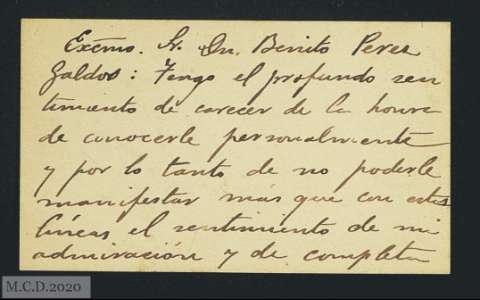 Excmo. Sr. Dn. Benito Perez
Galdos: Tengo el profundo sen
timiento de carecer de la honra
de conocerle personalmente
y por lo tanto de no poderle
manifestar más que con estas
líneas el sentimiento de mi
admiración y de completa
M.C.D.2020